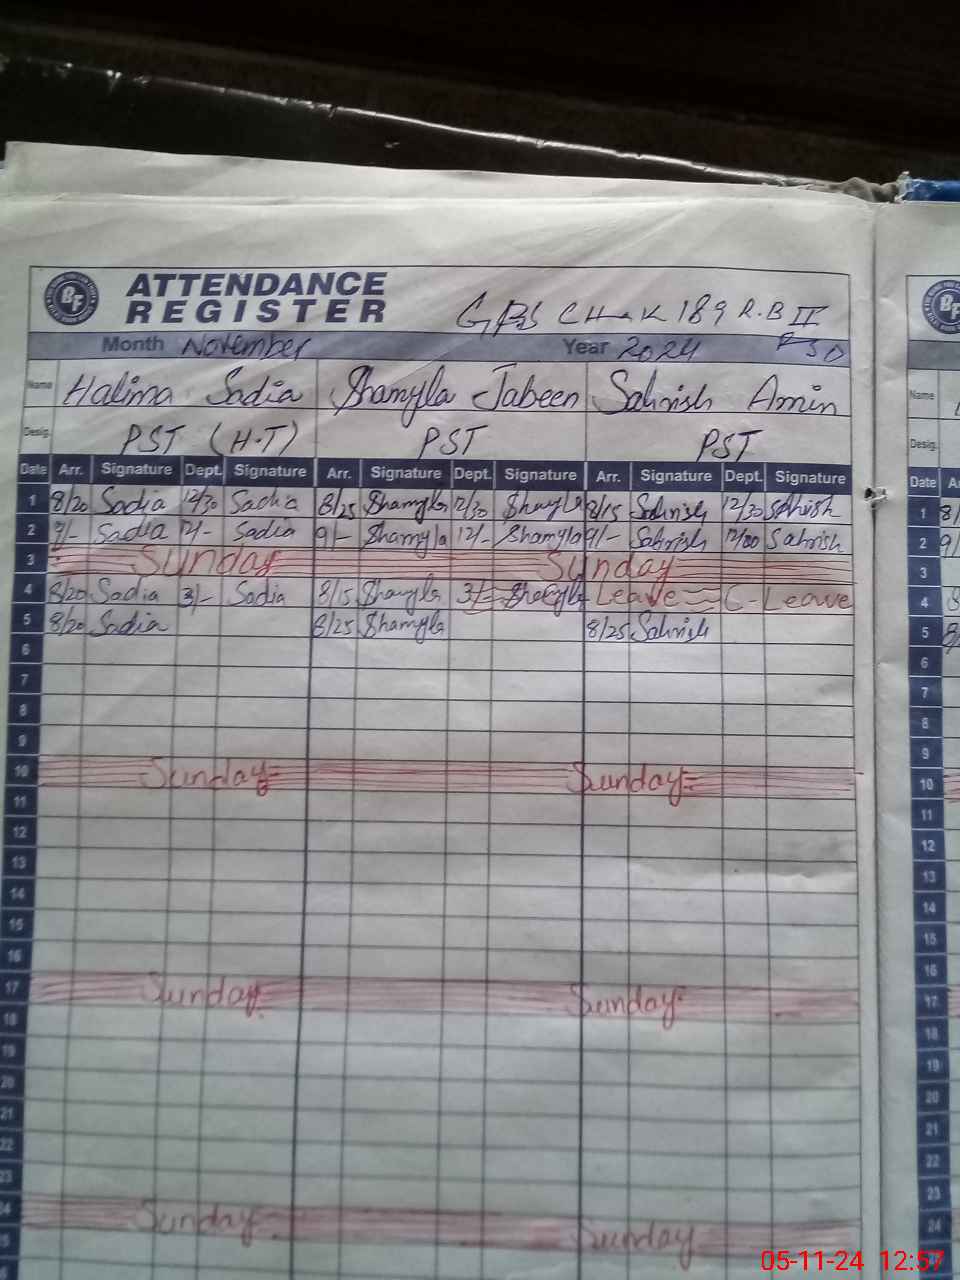 ATTENDANCE
REGISTER
BF
GPS CHAK 189 R.B II
Month November Year 2024
Name Halima Sadia Shamyla Jabeen Sahrish Amin Name
Desig. PST (H.T) PST PST Desig.
Date Arr. Signature Dept. Signature Arr. Signature Dept. Signature Arr. Signature Dept. Signature Date
1 8/20 Sadia 12/30 Sadia 8/25 Shamyla 12/30 Shamyla 8/15 Sahrish 12/30 Sahrish 1
2 9/- Sadia 12/- Sadia 9/- Shamyla 12/- Shamyla 9/- Sahrish 12/00 Sahrish 2
3 Sunday Sunday 3
4 8/20 Sadia 3/- Sadia 8/15 Shamyla 3/- Shamyla Leave C-Leave 4
5 8/20 Sadia 8/25 Shamyla 8/25 Sahrish 5
6 6
7 7
8 8
9 9
10 Sunday Sunday 10
11 11
12 12
13 13
14 14
15 15
16 16
17 Sunday Sunday 17
18 18
19 19
20 20
21 21
22 22
23 23
24 Sunday Sunday 24
05-11-24 12:57